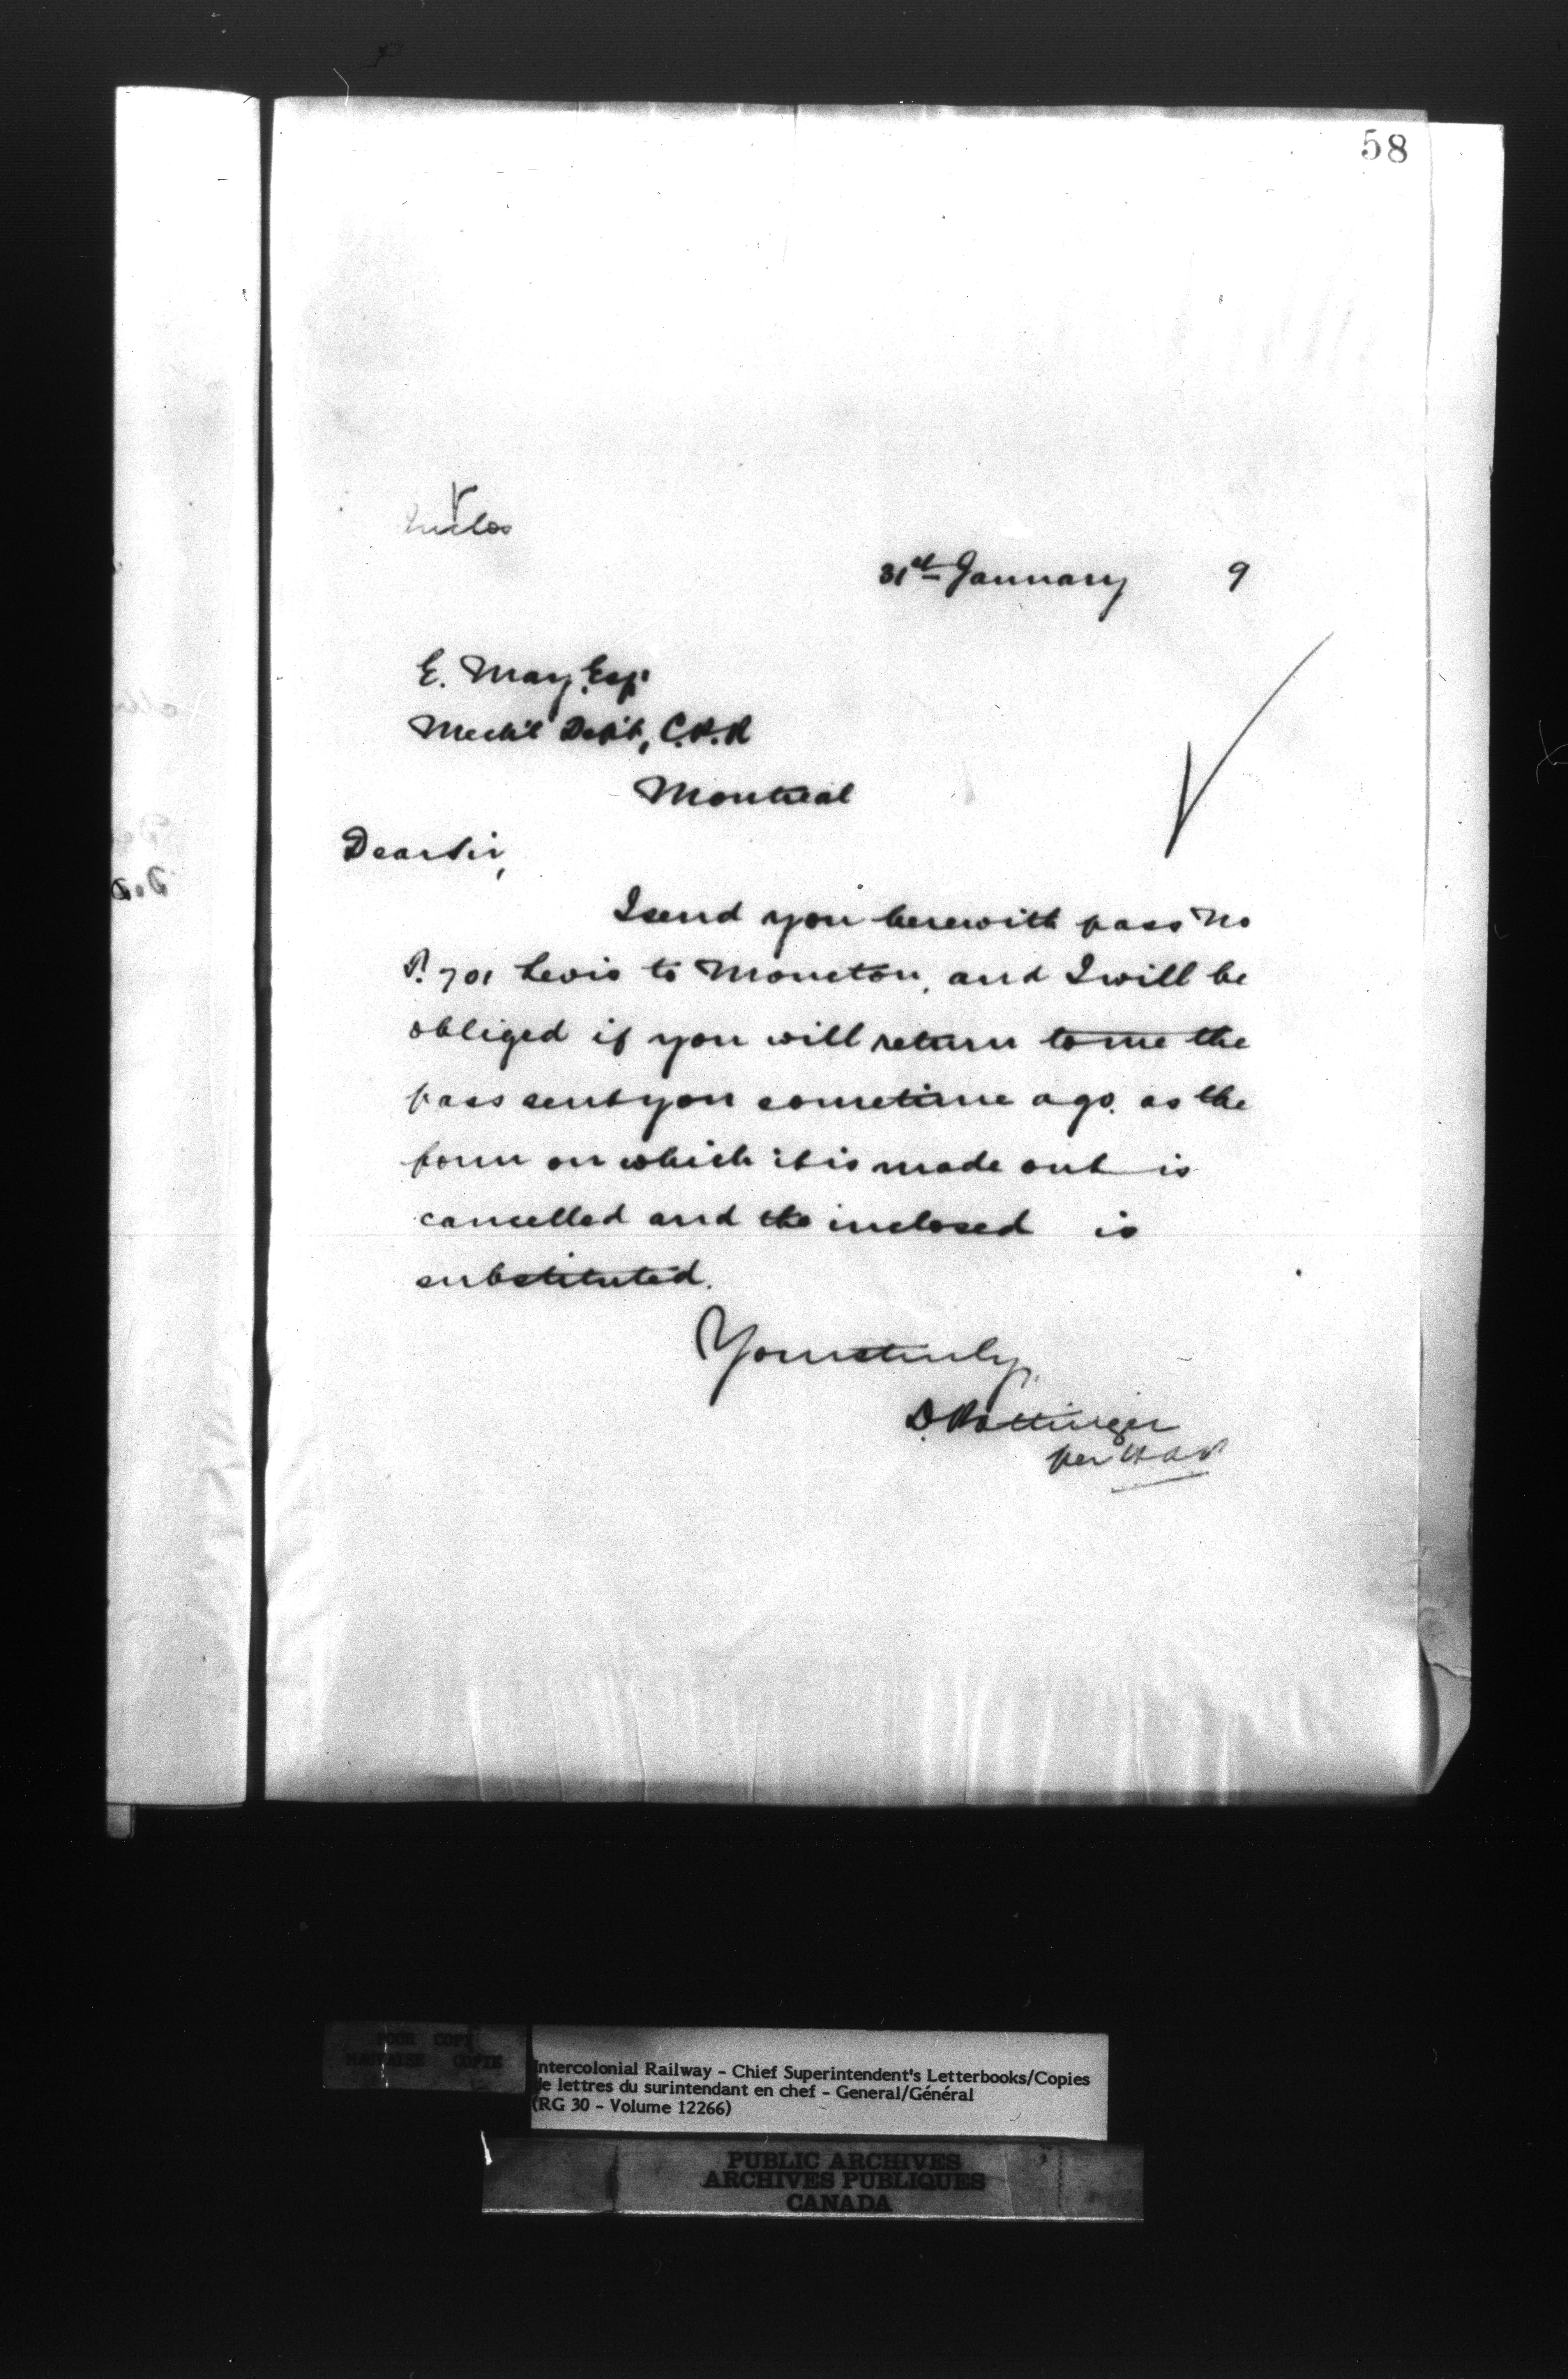 58
Inclos
31st January 9
E. May, Esq.
Mech'l Dep't, C.P.R
Montreal
Dear Sir,
I send you herewith pass No
P. 701 Levis to Moncton, and I will be
obliged if you will return to me the
pass sent you sometime ago, as the
form on which it is made out is
cancelled and the inclosed is
substituted.
Yours truly,
D. Pottinger
per
POOR COPY
MAUVAISE COPIE
Intercolonial Railway - Chief Superintendent's Letterbooks/Copies
de lettres du surintendant en chef - General/Général
(RG 30 - Volume 12266)
PUBLIC ARCHIVES
ARCHIVES PUBLIQUES
CANADA